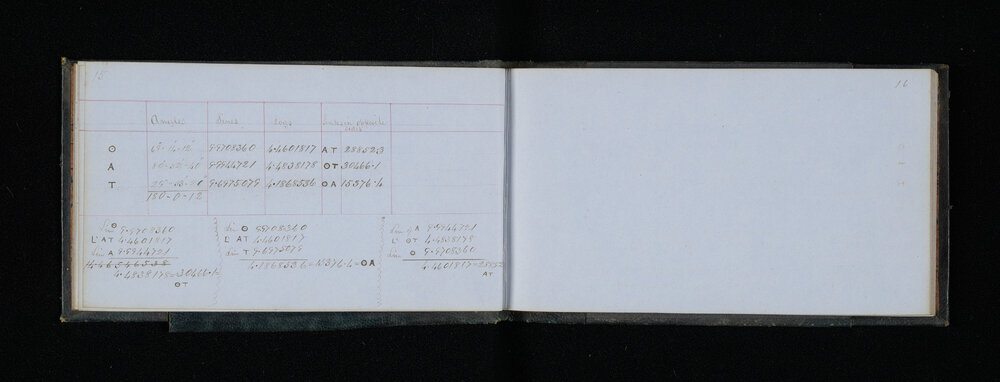 15
Angles Sines Logs Links in opposite sides
⊙ 9.9708360 4.4601817 AT 28852.3
A 9.9944721 4.4838178 ⊙T 30466.1
T 9.6975079 4.1868536 ⊙A 15376.4
180-0-12
Sin ⊙ 9.9708360
L' AT 4.4601817
Sin A 9.9944721
14.46546538
4.4838178=30466.1
⊙T
Sin ⊙ 9.9708360
L' AT 4.4601817
Sin T 9.6975079
4.1868536=15376.4=⊙A
Sin of A 9.9944721
L' ⊙T 4.4838178
Sin ⊙ 9.9708360
4.4601817=28852
AT
16